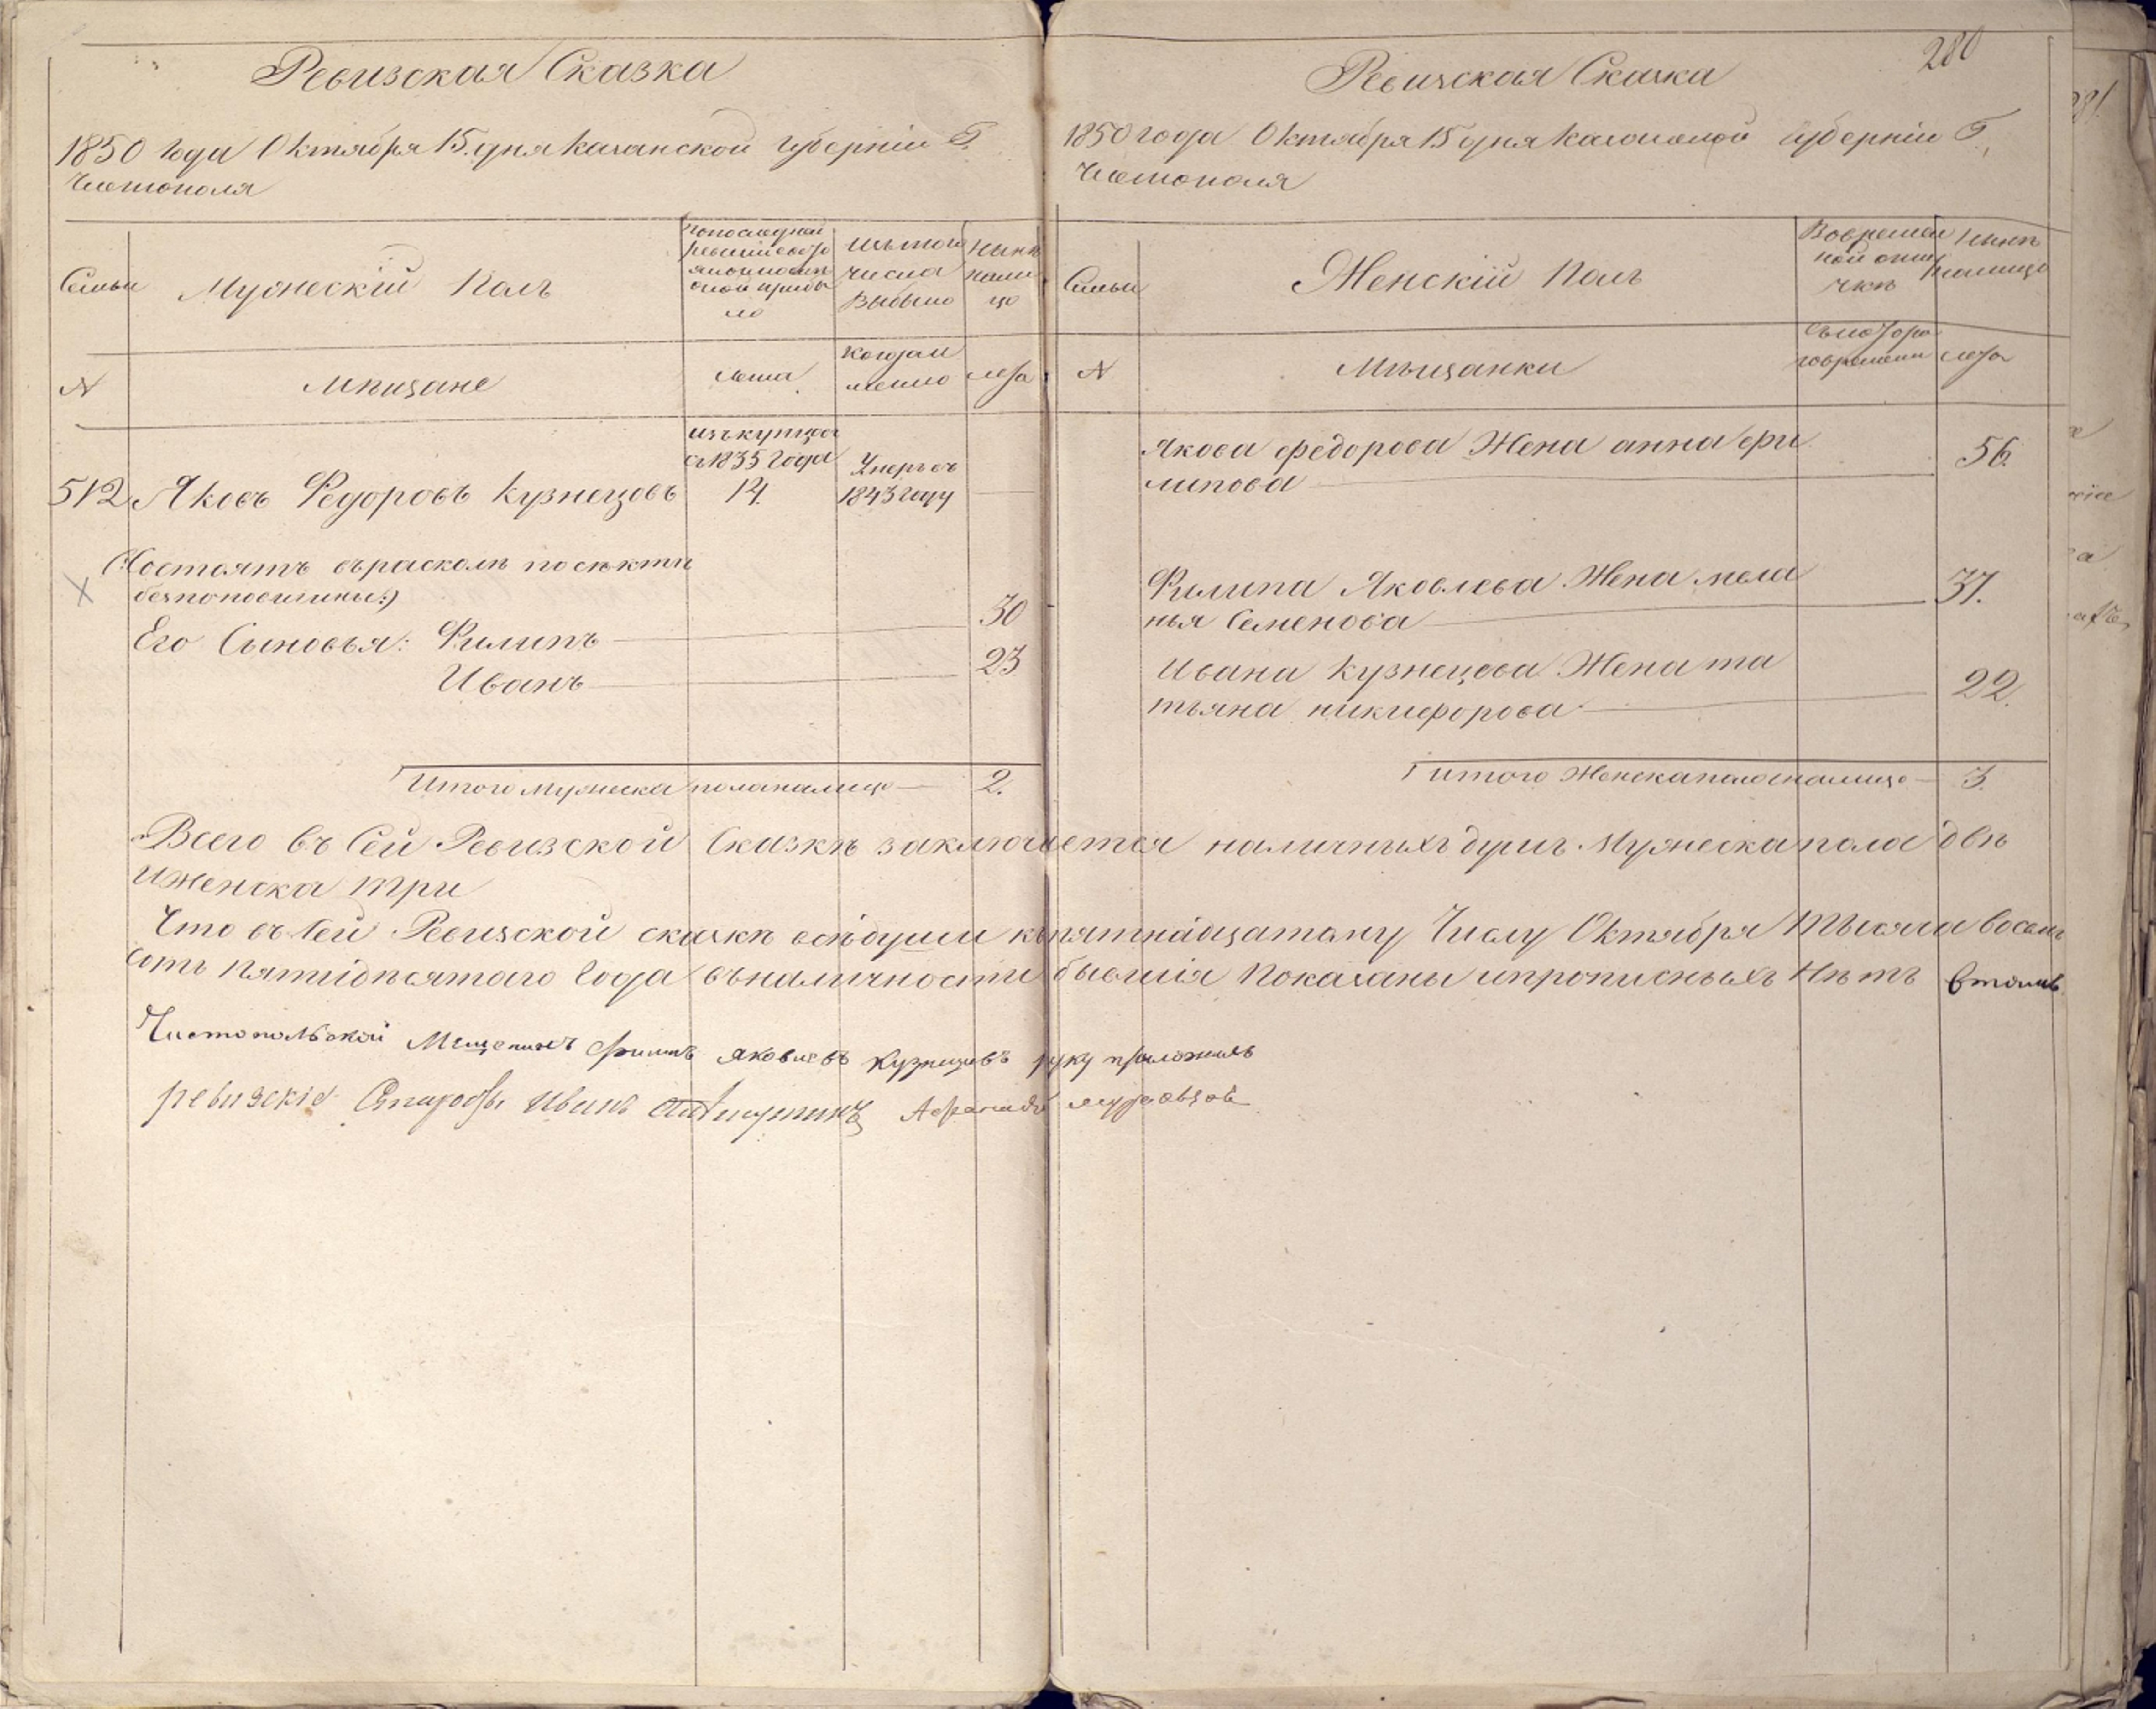 Ревизская Сказка
1850 года Октября 15. дня казанской губерніи Г.
Чистополя
Семьи
Мужескій Полъ
попоследней
ревизіи состо
яло и после
оной прибы
ло
Изъ того
числа
Выбыло
Нынѣ
нали
цо
N
мѣщане
Лета
когда и
менно
лета
512
Яковъ Федоровъ Кузнецовъ
изъ купцов
съ 1835 года
14.
Умеръ въ
1843 году
(Состоятъ въ расколѣ по сѣктѣ
безпоповшины:)
Его Сыновья: Филипъ
30
Иванъ
23
Итого мужеска пола налицо
2.
280
Ревизская Сказка
1850 года Октября 15 дня казанской губерніи Г.
Чистополя
Семьи
Женскій Полъ
Вовремен
ной отлу
чкѣ
Нынѣ
налицо
N
Мѣщанки
Съ которо
го времени
лета
Якова федорова Жена анна фи
липова
56.
Филипа Яковлева Жена мела
нья Семенова
37.
Ивана Кузнецова Жена та
тьяна никифорова
22.
итого Женска пола налицо
3.
Всего въ Сей Ревизской Сказкѣ заключается наличныхъ душъ Мужеска пола двѣ
и женска три
Что въ Сей Ревизской сказкѣ всѣ души къ пятнадцатому Числу Октября Тысяча восемь
сотъ пятидѣсятого Года въ наличности бывшія показаны и прописныхъ Нѣтъ в томъ
Чистопольской Мещенинъ Филипъ яковлевъ Кузнецовъ руку приложилъ
ревизскіе Старосты Иванъ